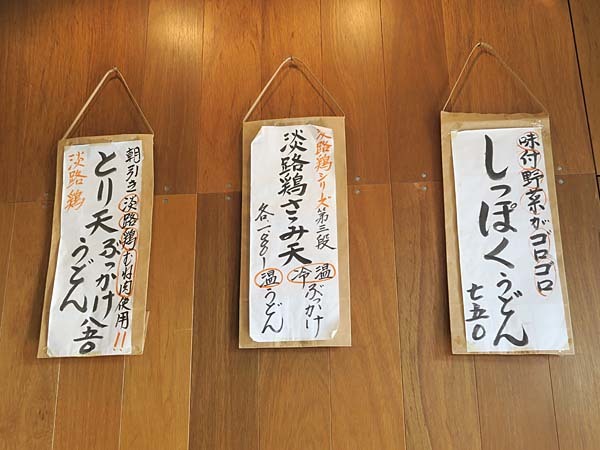 朝引き淡路鶏むね肉使用!!
とり天ぶっかけ八五〇
うどん
淡路鶏
淡路鶏シリーズ第三段
淡路鶏ささみ天
冷温ぶっかけ
温うどん
味付野菜がゴロゴロ
しっぽくうどん
七五〇